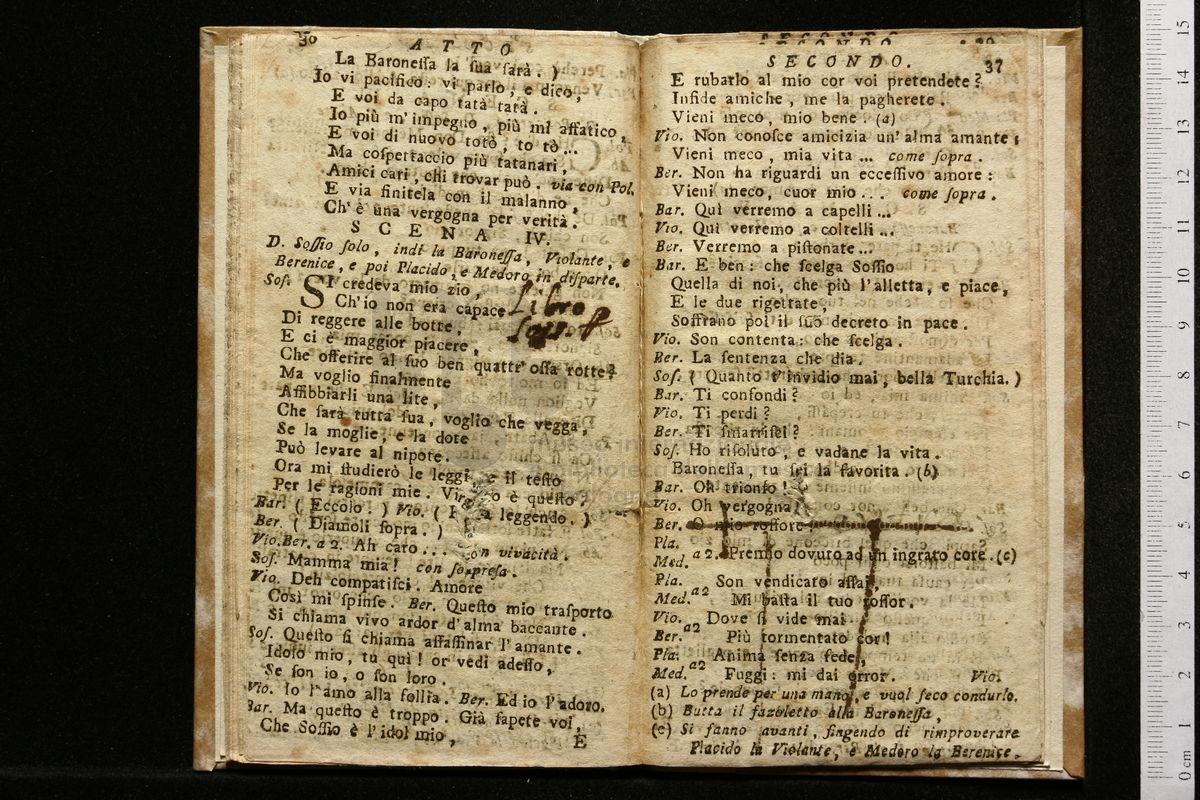 A T T O
La Baronessa la sua sarà. )
Io vi pacifico: vi parlo, e dico,
E voi da capo tatà tatà.
Io più m'impegno, più mi affatico,
E voi di nuovo totò, to tò...
Ma cospettaccio più tatanari,
Amici cari, chi trovar può. via con Pol.
E via finitela con il malanno,
Ch'è una vergogna per verità.
S C E N A IV.
D. Sossio solo, indi la Baronessa, Violante, e
Berenice, e poi Placido, e Medoro in disparte.
Sos. SI credeva mio zio,
Ch'io non era capace
Di reggere alle botte,
E ci è maggior piacere,
Che offerire al suo ben quattr'ossa rotte?
Ma voglio finalmente
Affibbiarli una lite,
Che sarà tutta sua, voglio che vegga,
Se la moglie, e la dote
Può levare al nipote.
Ora mi studierò le leggi, e il testo
Per le ragioni mie. è questo.
Bar. ( Eccolo! ) Vio. ( leggendo. )
Ber. ( Diamoli sopra. )
Vio.Ber. a 2. Ah caro... con vivacità.
Sos. Mamma mia! con sorpresa.
Vio. Deh compatisci. Amore
Così mi spinse. Ber. Questo mio trasporto
Si chiama vivo ardor d'alma baccante.
Sos. Questo si chiama assassinar l'amante.
Idolo mio, tu qui! or vedi adesso,
Se son io, o son loro.
Vio. Io l'amo alla follia. Ber. Ed io l'adoro.
Bar. Ma questo è troppo. Già sapete voi,
Che Sossio è l'idol mio,
E
Libro
S E C O N D O. 37
E rubarlo al mio cor voi pretendete?
Infide amiche, me la pagherete.
Vieni meco, mio bene. (a)
Vio. Non conosce amicizia un'alma amante:
Vieni meco, mia vita... come sopra.
Ber. Non ha riguardi un eccessivo amore:
Vieni meco, cuor mio... come sopra.
Bar. Quì verremo a capelli...
Vio. Quì verremo a coltelli...
Ber. Verremo a pistonate...
Bar. E ben: che scelga Sossio
Quella di noi, che più l'alletta, e piace,
E le due rigettate,
Soffrano poi il suo decreto in pace.
Vio. Son contenta: che scelga.
Ber. La sentenza che dia.
Sos. ( Quanto t'invidio mai, bella Turchia. )
Bar. Ti confondi?
Vio. Ti perdi?
Ber. Ti smarrisci?
Sos. Ho risoluto, e vadane la vita.
Baronessa, tu sei la favorita. (b)
Bar. Oh trionfo!
Vio. Oh vergogna!
Ber. O mio rossore
Pla.
Med. a 2. Premio dovuto ad un ingrato core. (c)
Pla. Son vendicato assai,
Med. a2 Mi basta il tuo rossor.
Vio. Dove si vide mai
Ber. a2 Più tormentato cor!
Pla. Anima senza fede,
Med. a2 Fuggi: mi dai error. Vio.
(a) Lo prende per una mano, e vuol seco condurlo.
(b) Butta il fazoletto alla Baronessa,
(c) Si fanno avanti, fingendo di rimproverare
Placido la Violante, e Medoro la Berenice.
15
14
13
12
11
10
9
8
7
6
5
4
3
2
1
0 cm